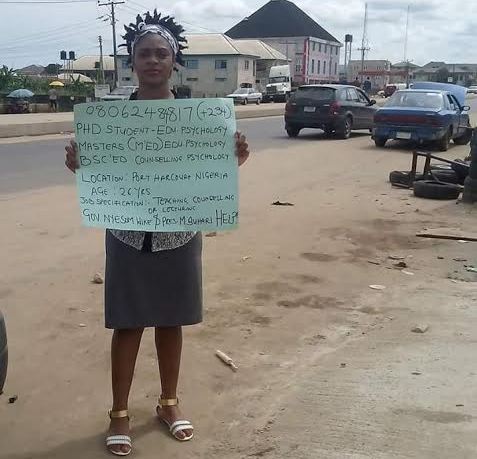 08062484817 (+234)
PHD STUDENT - EDU PSYCHOLOGY
MASTERS (M'ED) EDU PSYCHOLOGY
BSC'ED COUNSELLING PSYCHOLOGY
LOCATION: PORT HARCOURT NIGERIA
AGE: 26 YRS
JOB SPECIFICATION:- TEACHING, COUNSELLING
OR LECTURING
GOV. NYESOM WIKE & PRES. M. BUHARI HELP!